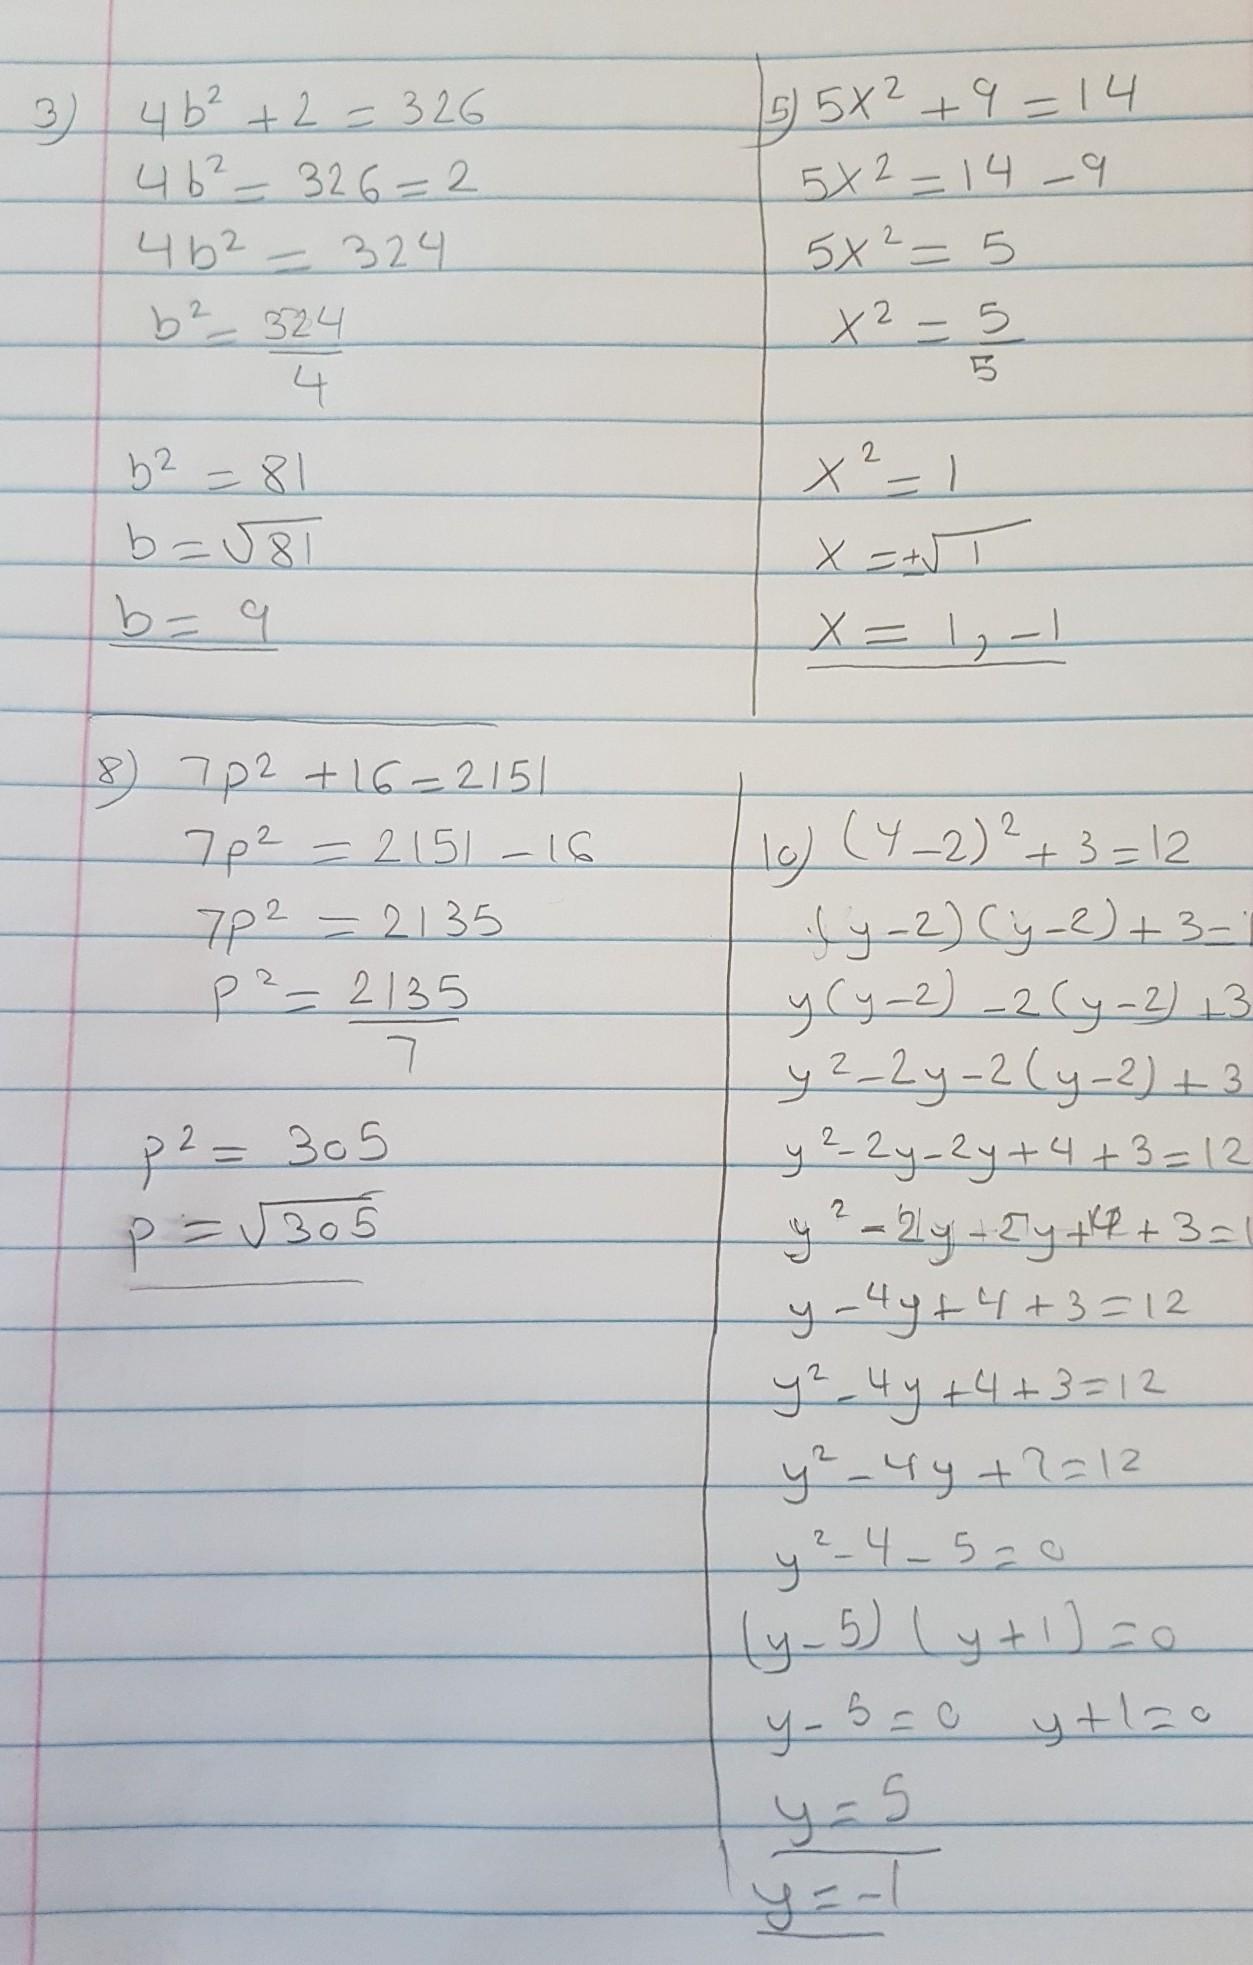 3) 4b² + 2 = 326
4b² = 326 = 2
4b² = 324
b² = 324
4
b² = 81
b = √81
b = 9
5) 5x² + 9 = 14
5x² = 14 - 9
5x² = 5
x² = 5
5
x² = 1
x = ±√1
x = 1, -1
8) 7p² + 16 = 2151
7p² = 2151 - 16
7p² = 2135
p² = 2135
7
p² = 305
p = √305
10) (y-2)² + 3 = 12
(y-2)(y-2) + 3 = 1
y(y-2) - 2(y-2) + 3
y² - 2y - 2(y-2) + 3
y² - 2y - 2y + 4 + 3 = 12
y² - 2y + 2y + 4 + 3 = 1
y - 4y + 4 + 3 = 12
y² - 4y + 4 + 3 = 12
y² - 4y + 7 = 12
y² - 4 - 5 = 0
(y-5) (y+1) = 0
y - 5 = 0 y + 1 = 0
y = 5
y = -1